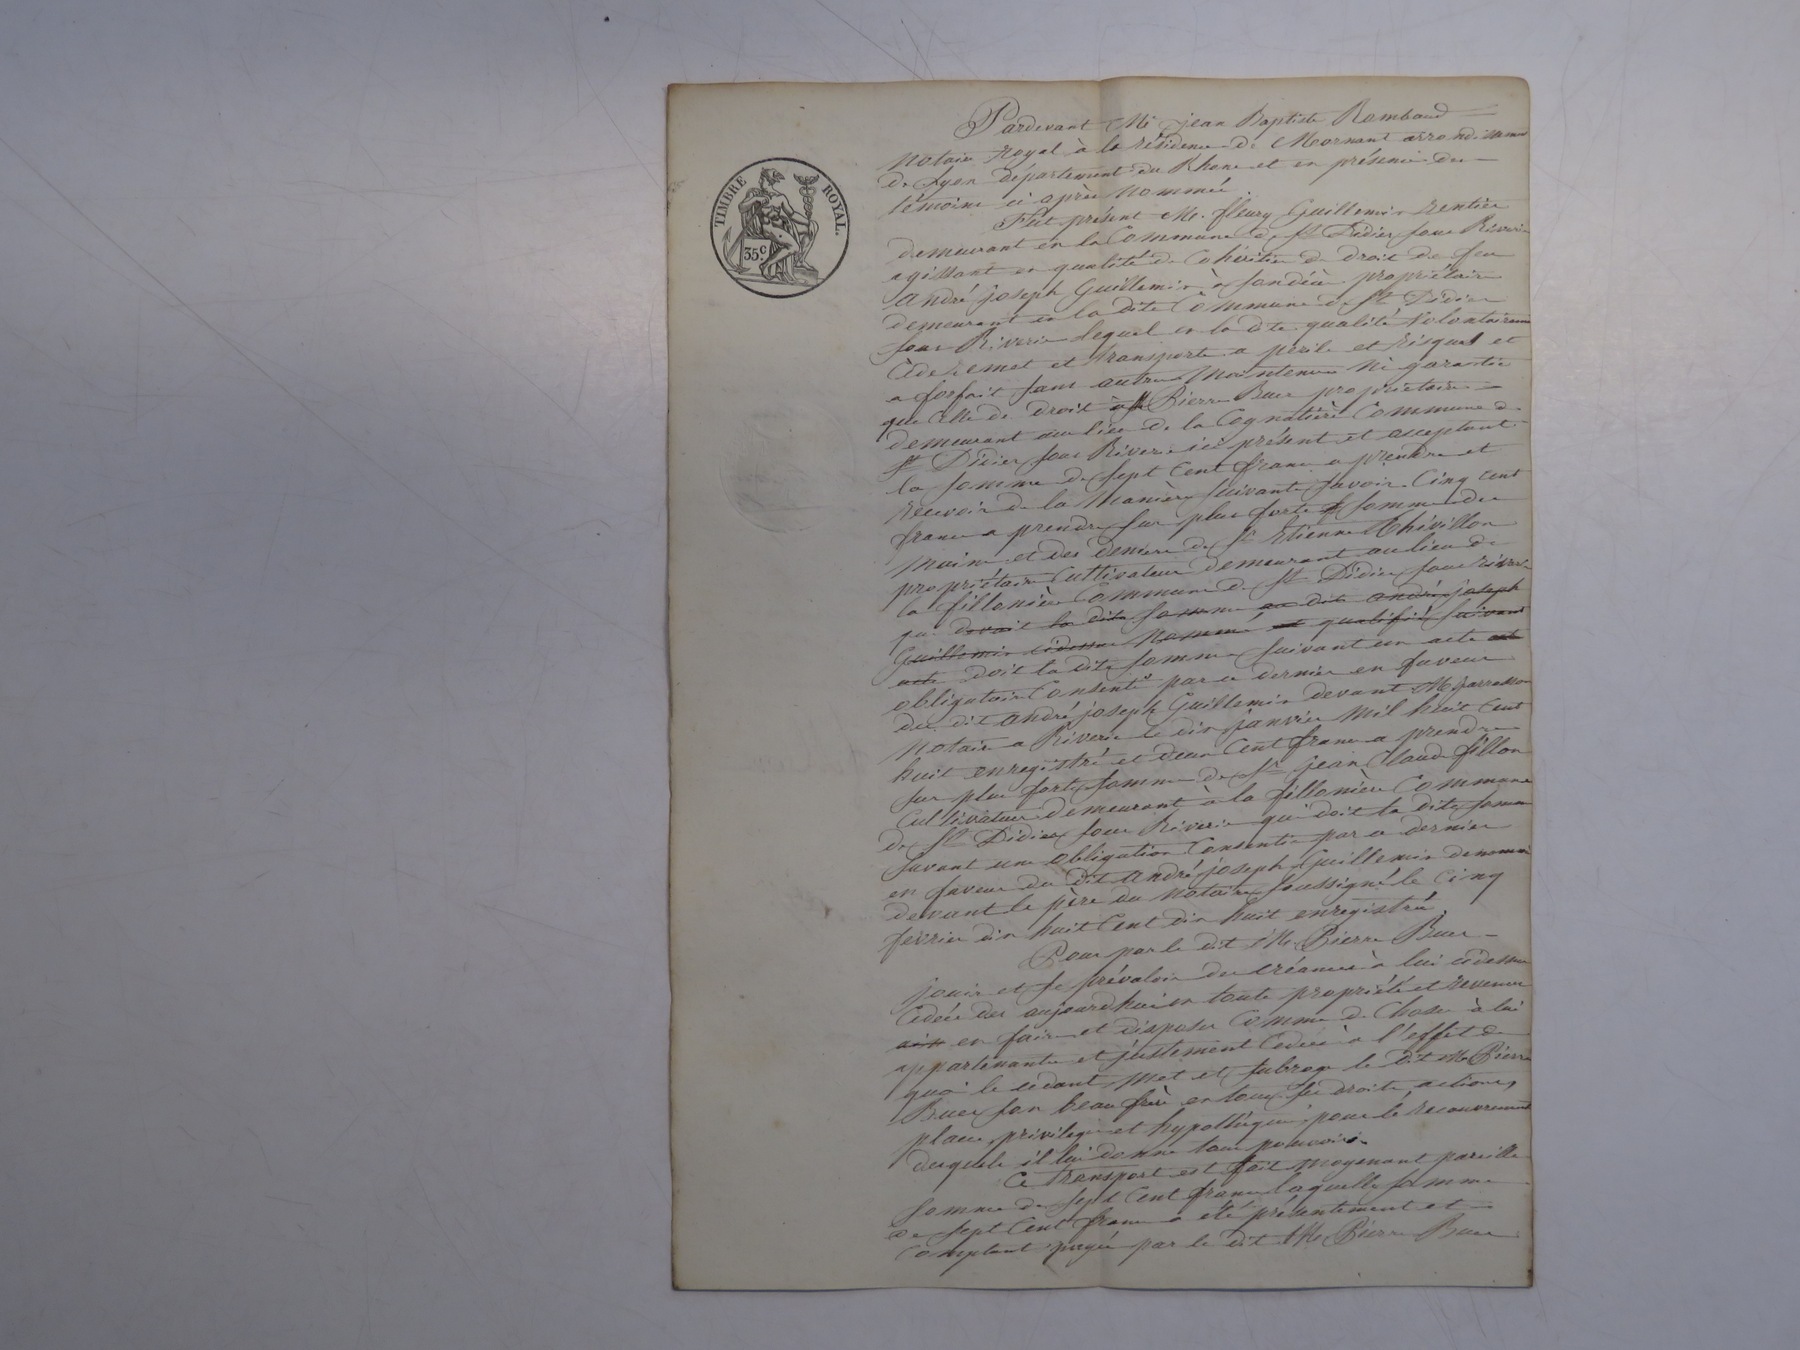 TIMBRE ROYAL.
35 c
Pardevant Me jean Baptiste Rambaud
Notaire Royal à la résidence de Mornant arrondissement
de Lyon département du Rhone et en présence des
témoins ci après nommés
Fut présent M. fleury Guillermin rentier
demeurant en la Commune de St Didier sous Riverie
agissant en qualité de Cohéritier de droit de feu
André joseph Guillermin propriétaire
demeurant en la dite Commune de St Didier
sous Riverie lequel en la dte qualité Volontairement
Cède remet et transporte a périls et risques et
a forfait sans autres Maintenue Ni garantie
que Celle de droit à Pierre Buer propriétaire
demeurant au lieu de la Cognatière Commune de
St Didier sous Riverie ici présent et acceptant
la somme de sept Cent francs a prendre et
recevoir de la Manière suivante savoir Cinq cent
francs a prendre sur plus forte somme des
mains et des deniers de Sr Etienne Thévillon
propriétaire Cultivateur demeurant au lieu de
la fillonière Commune de St Didier sous Riverie
qui devait la dite somme au dit andré joseph
Guillermin cidessus Nommé et qualifié suivant
acte doit la dite somme suivant un acte
obligatoire Consenti par ce dernier en faveur
du dit André joseph Guillermin devant Me
Notaire a Riverie le dix janvier Mil huit Cent
huit enregistré et deux Cent francs a prendre
sur plus forte somme de Sr jean Claude fillon
Cultivateur demeurant à la fillonière Commune
de St Didier sous Riverie qui doit la dite somme
suvant une obligation Consentie par ce dernier
en faveur du dit André joseph Guillermin denommé
devant le père du Notaire soussigné le Cinq
fevrier dix huit Cent dix huit enregistré.
Pour par le dit Me Pierre Buer
jouir et se prévaloir des créances à lui cidessus
Cédées des aujourdhui en toute propriété et revenus
en faire et disposer Comme de Chose à lui
appartenante et justement Cédée à l'effet de
quoi le cédant Met et subroge le dit Me Pierre
Buer son beau frère en tous ses droits actions,
place, privilege et hypothèques pour le recouvrement
desquels il lui donne tous pouvoirs.
Ce transport est fait Moyenant pareille
somme de sept Cent francs laquelle somme
de sept Cent francs a été présentement et
Comptant payée par le dit Me Pierre Buer